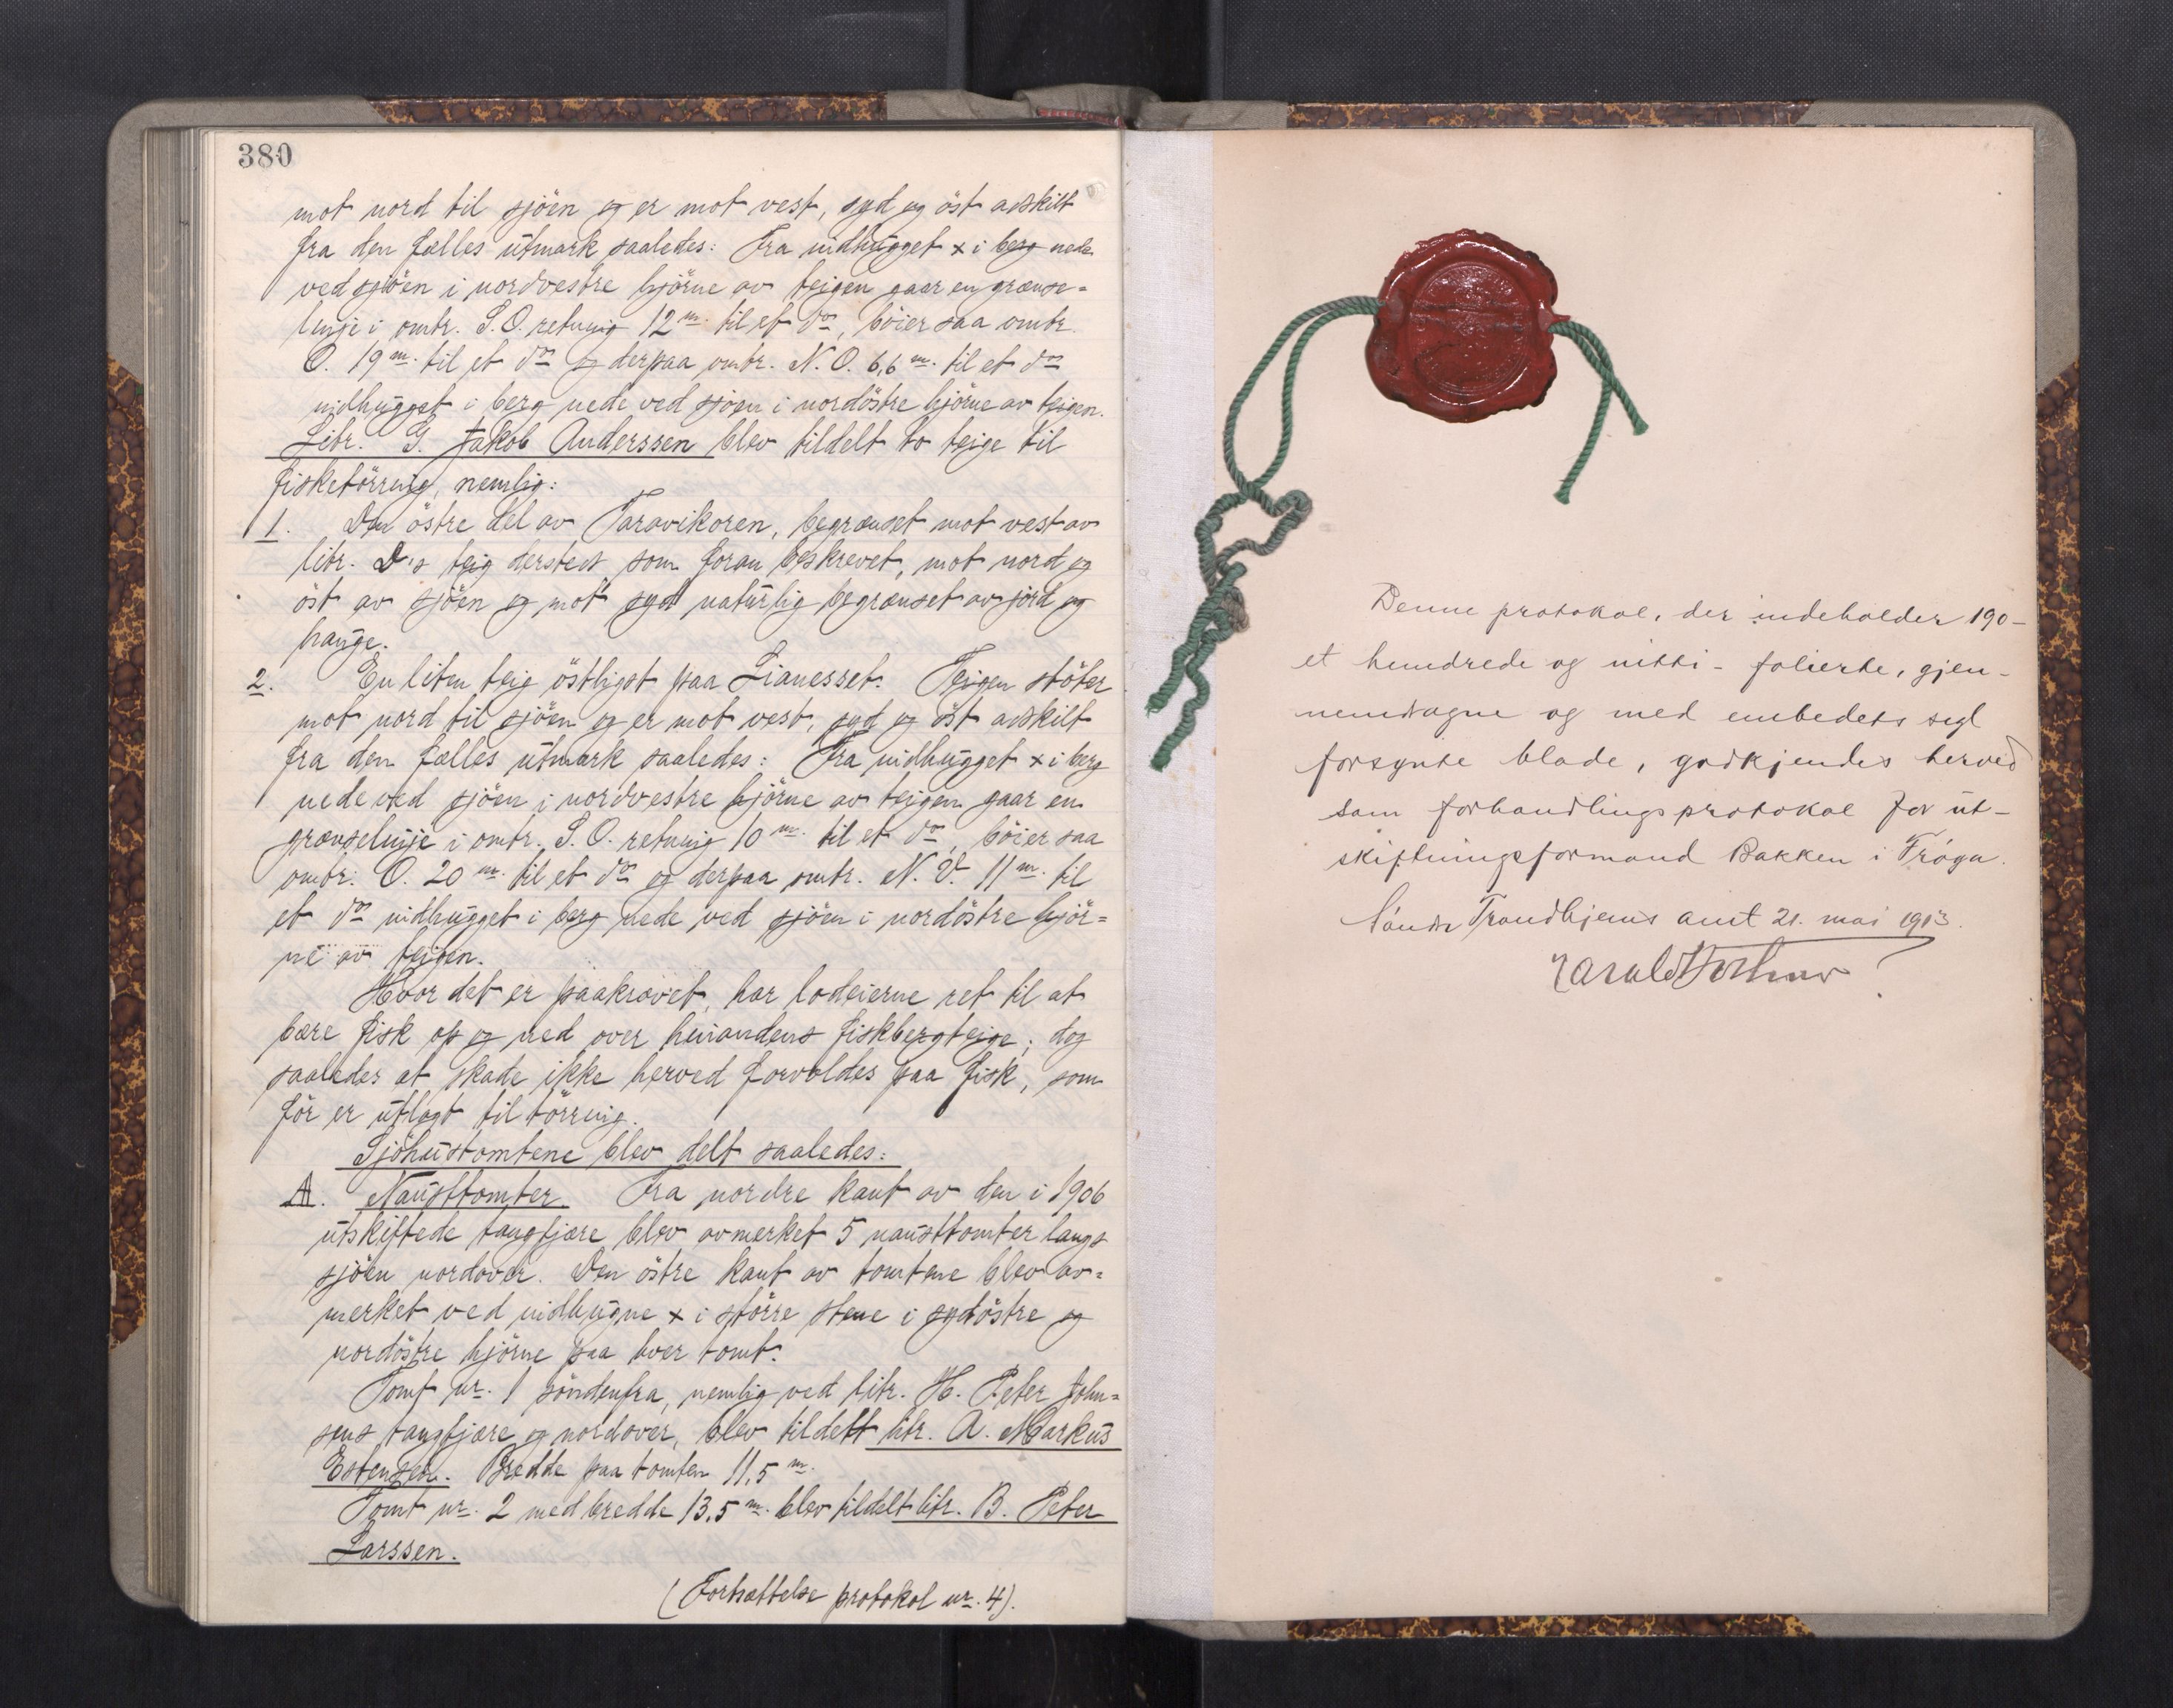 380
mot nord til sjöen og er mot vest, syd og öst adskilt
fra den fælles utmark saaledes: Fra indhugget x i berg nede
ved sjöen i nordvestre hjörne av teigen gaar en grænse-
linje i omtr. S.O. retning 12 m. til et do, böier saa omtr.
O. 19 m. til et do og derpaa omtr. N.O. 6,6 m. til et do
indhugget i berg nede ved sjöen i nordöstre hjörne av teigen.
Litr. G. Jakob Anderssen blev tildelt to teige til
fisketörring, nemlig:
1. Den östre del av Taravikoren, begrænset mot vest av
litr. D's teig dersteds som foran beskrevet, mot nord og
öst av sjöen og mot syd naturlig begrænset av jord og
hauge.
2. En liten teig östligst paa Lianesset. Teigen stöter
mot nord til sjöen og er mot vest, syd og öst adskilt
fra den fælles utmark saaledes: Fra indhugget x i berg
nede ved sjöen i nordvestre hjörne av teigen gaar en
grænselinje i omtr. S.O. retning 10 m. til et do, böier saa
omtr. O. 20 m. til et do og derpaa omtr. N. 11 m. til
et do indhugget i berg nede ved sjöen i nordöstre hjör-
ne av teigen.
Hvor det er paakrævet, har lodeierne ret til at
bære fisk op og ned over hinandens fiskbergteige; dog
saaledes at skade ikke herved forvoldes paa fisk, som
för er utlagt til törring.
Sjöhustomtene blev delt saaledes:
A. Nausttomter Fra nordre kant av den i 1906
utskiftede tangfjære blev avmerket 5 nausttomter langs
sjöen nordover. Den östre kant av tomtene blev av-
merket ved indhugne x i större stene i sydöstre og
nordöstre hjörne paa hver tomt.
Tomt nr. 1 söndenfra, nemlig ved litr. H. Peter John-
sens tangfjære og nordover, blev tildelt litr. A. Markus
Estensen. Bredde paa tomten 11,5 m.
Tomt nr. 2 med bredde 13,5 m. blev tildelt litr. B. Peter
Larssen.
(Fortsættelse protokol nr. 4).
Denne protokol, der indeholder 190-
et hundrede og nitti - folierte, gjen-
nemdragne og med embedets segl
forsynte blade, godkjendes herved
som forhandlingsprotokol for ut-
skiftningsformand Bakken i Fröya.
Söndre Trondhjems amt 21. mai 1913.
Harald